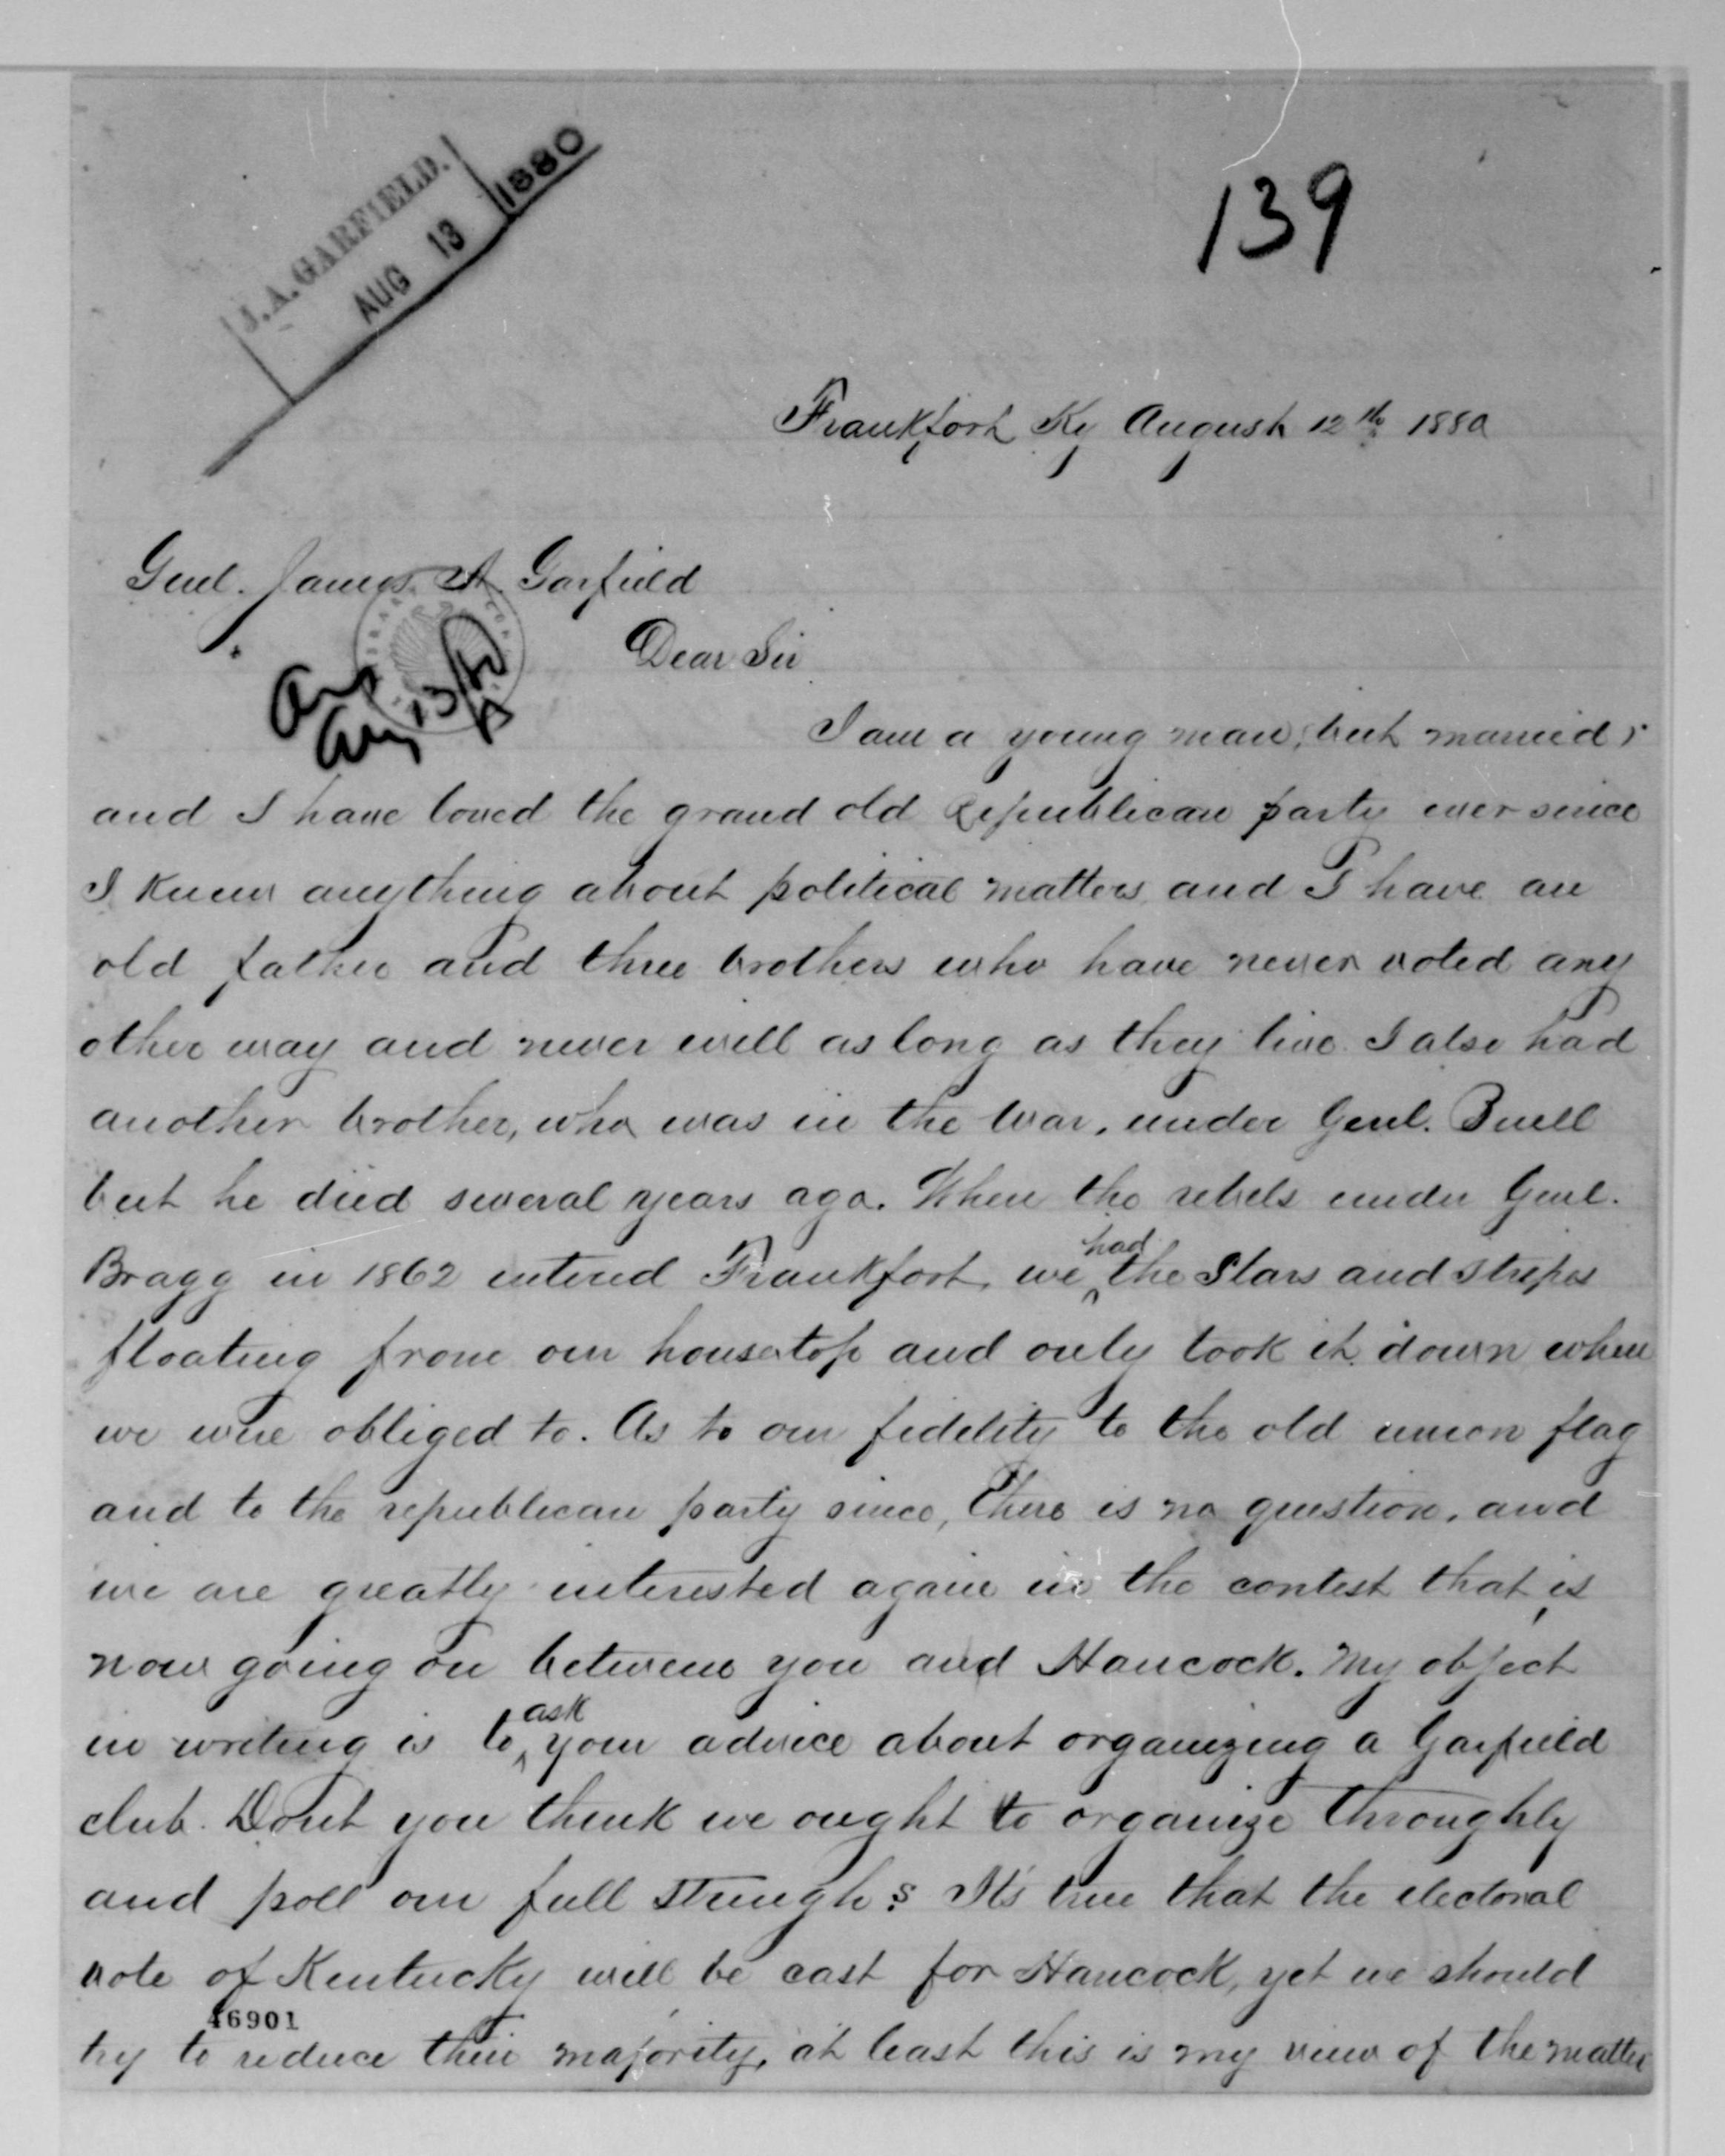 J. A. GARFIELD.
AUG 13 1880
139
Frankfort Ky August 12th 1880
Genl. James A. Garfield
Dear Sir
Ans
Aug 13/80
I am a young man, but married,
and I have loved the grand old Republican party ever since
I knew anything about political matters and I have an
old father and three brothers who have never voted any
other way and never will as long as they live. I also had
another brother, who was in the war, under Genl. Buell
but he died several years ago. When the rebels under Genl.
Bragg in 1862 entered Frankfort, we had the Stars and Stripes
floating from our housetop and only took it down when
we were obliged to. As to our fidelity to the old union flag
and to the republican party since, there is no question, and
we are greatly interested again in the contest that is
now going on between you and Hancock. My object
in writing is to ask your advice about organizing a Garfield
club. Dont you think we ought to organize throughly
and poll our full strengh? It's true that the electoral
vote of Kentucky will be cast for Hancock, yet we should
46901
try to reduce their majority, at least this is my view of the matter